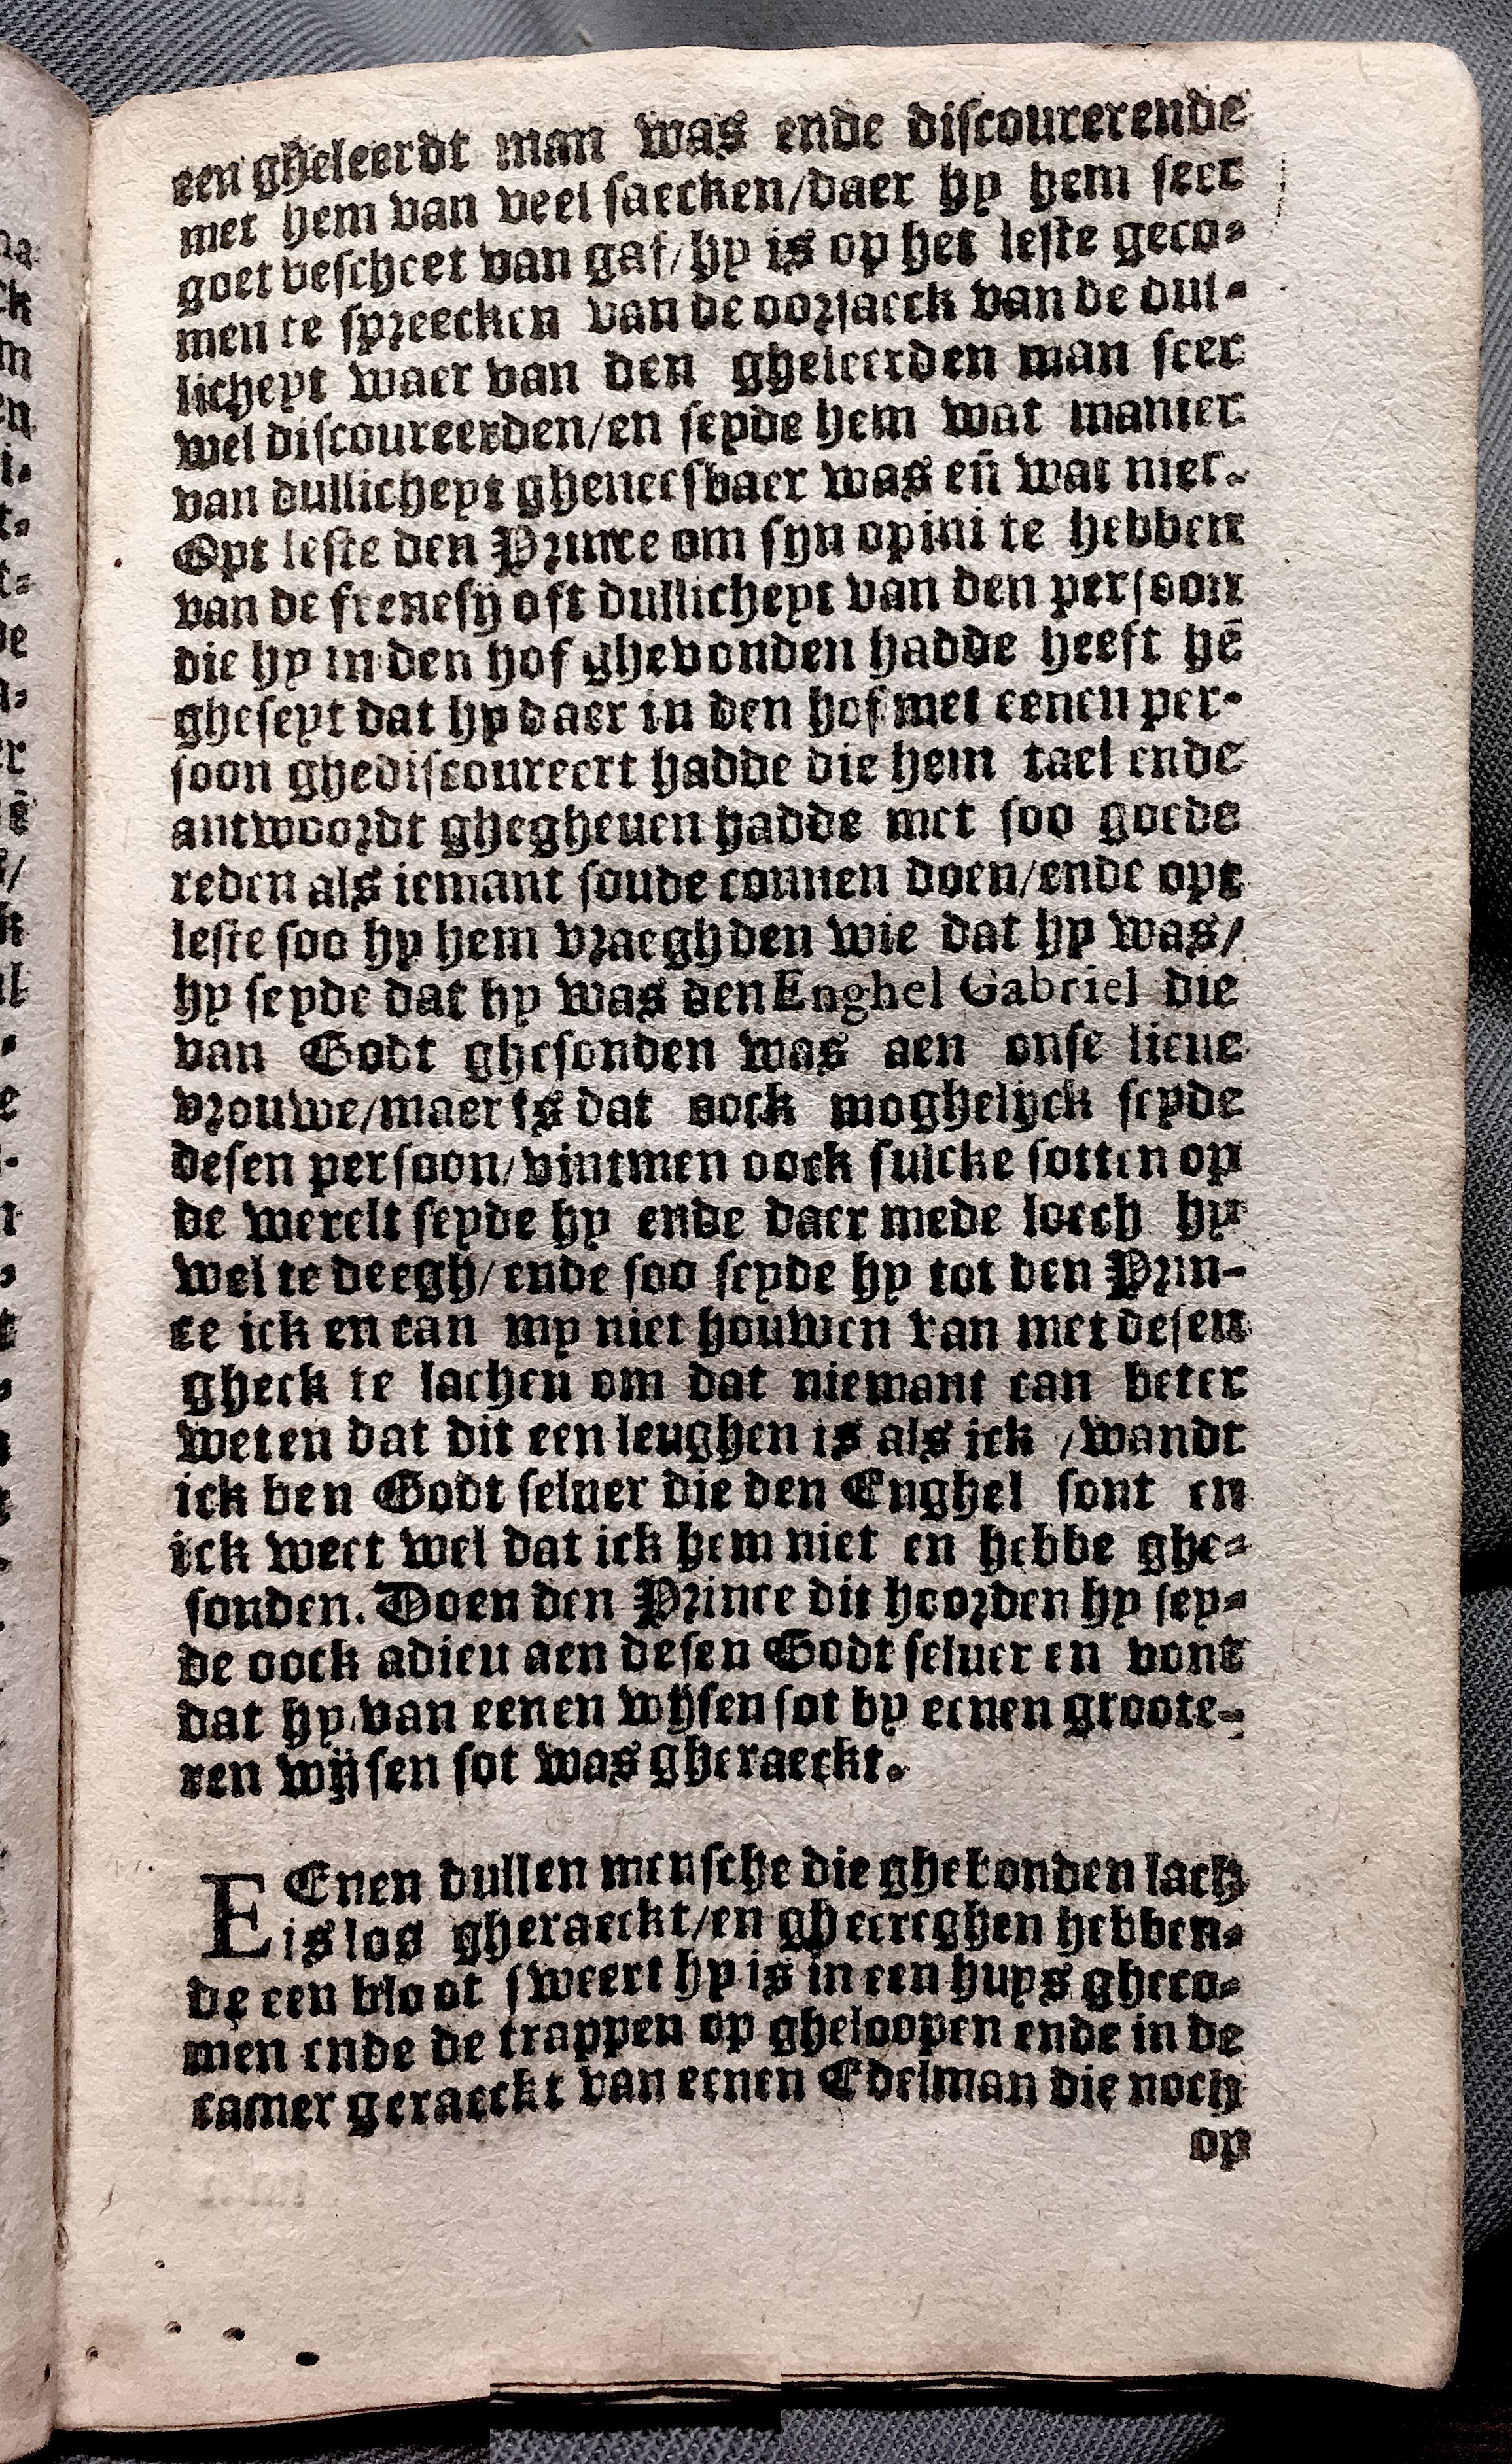 een gheleerdt man was ende discourerende
met hem van veel saecken/daer hy hem seer
goet bescheet van gaf/hy is op het leste geco-
men te spreecken van de oorsaeck van de dul-
licheyt waer van den gheleerden man seer
wel discoureerden/en seyde hem wat manier
van dullicheyt gheneesbaer was eñ wat niet.
Opt leste den Prince om syn opini te hebben
van de frenesij oft dullicheyt van den persoon
die hy in den hof ghevonden hadde heeft hē
gheseyt dat hy daer in den hof met eenen per-
soon ghediscoureert hadde die hem tael ende
antwoordt ghegheuen hadde met soo goede
reden als iemant soude connen doen/ende opt
leste soo hy hem vraeghden wie dat hy was/
hy seyde dat hy was den Enghel Gabriel die
van Godt ghesonden was aen onse lieue
vrouwe/maer is dat oock moghelijck seyde
desen persoon/vintmen oock sulcke sotten op
de werelt seyde hy ende daer mede loech hy
wel te deegh/ende soo seyde hy tot den Prin-
ce ick en can my niet houwen van met desen
gheck te lachen om dat niemant can beter
weten dat dit een leughen is als ick /wandt
ick ben Godt seluer die den Enghel sont en
ick weet wel dat ick hem niet en hebbe ghe-
sonden. Doen den Prince dit hoorden hy sey-
de oock adieu aen desen Godt seluer en vont
dat hy van eenen wijsen sot by eenen groote-
ren wijsen sot was gheraeckt.
EEnen dullen mensche die ghebonden lach
is los gheraeckt/en ghecreghen hebben-
de een bloot sweert hy is in een huys gheco-
men ende de trappen op gheloopen ende in de
camer geraeckt van eenen Edelman die noch
op